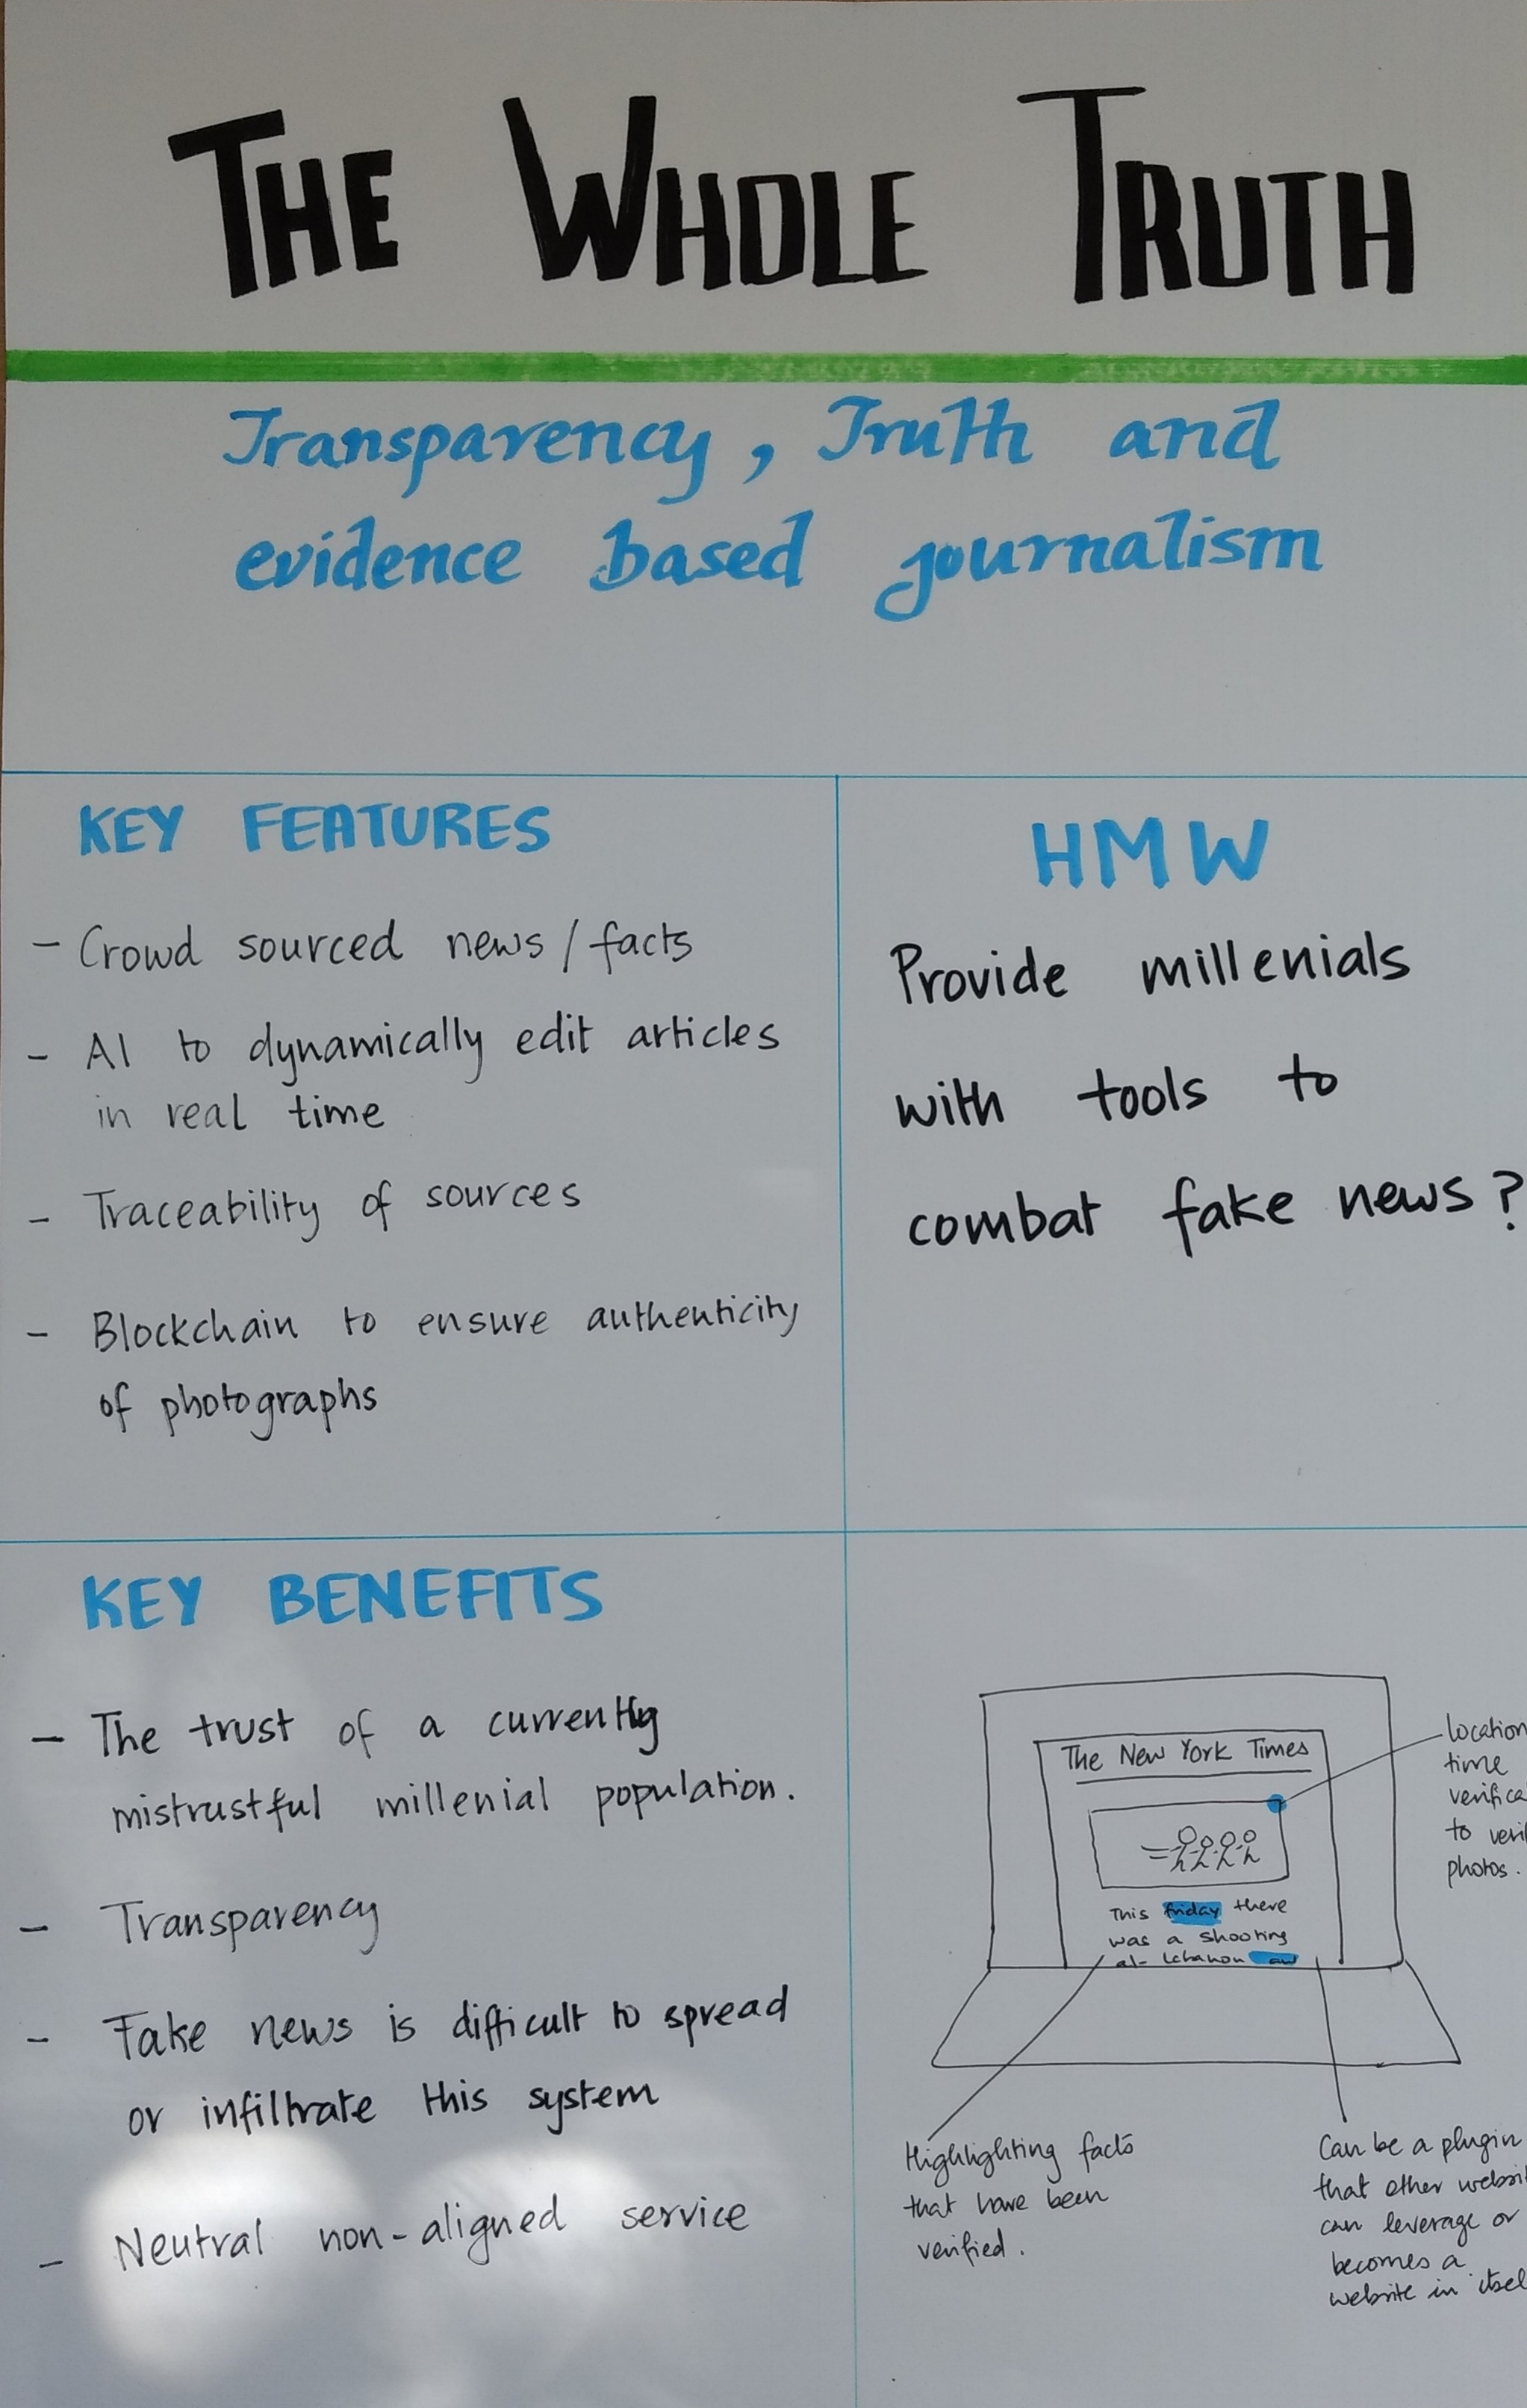 THE WHOLE TRUTH
Transparency, Truth and
evidence based journalism
KEY FEATURES
- Crowd sourced news / facts
- AI to dynamically edit articles
in real time
- Traceability of sources
- Blockchain to ensure authenticity
of photographs
HMW
Provide millenials
with tools to
combat fake news?
KEY BENEFITS
- The trust of a currently
mistrustful millenial population.
- Transparency
- Fake news is difficult to spread
or infiltrate this system
- Neutral non-aligned service
The New York Times
This friday there
was a shooting
at Lebanon
location
time
to
photos.
Highlighting facts
that have been
verified.
Can be a plugin
that other
can leverage or
becomes a
website in